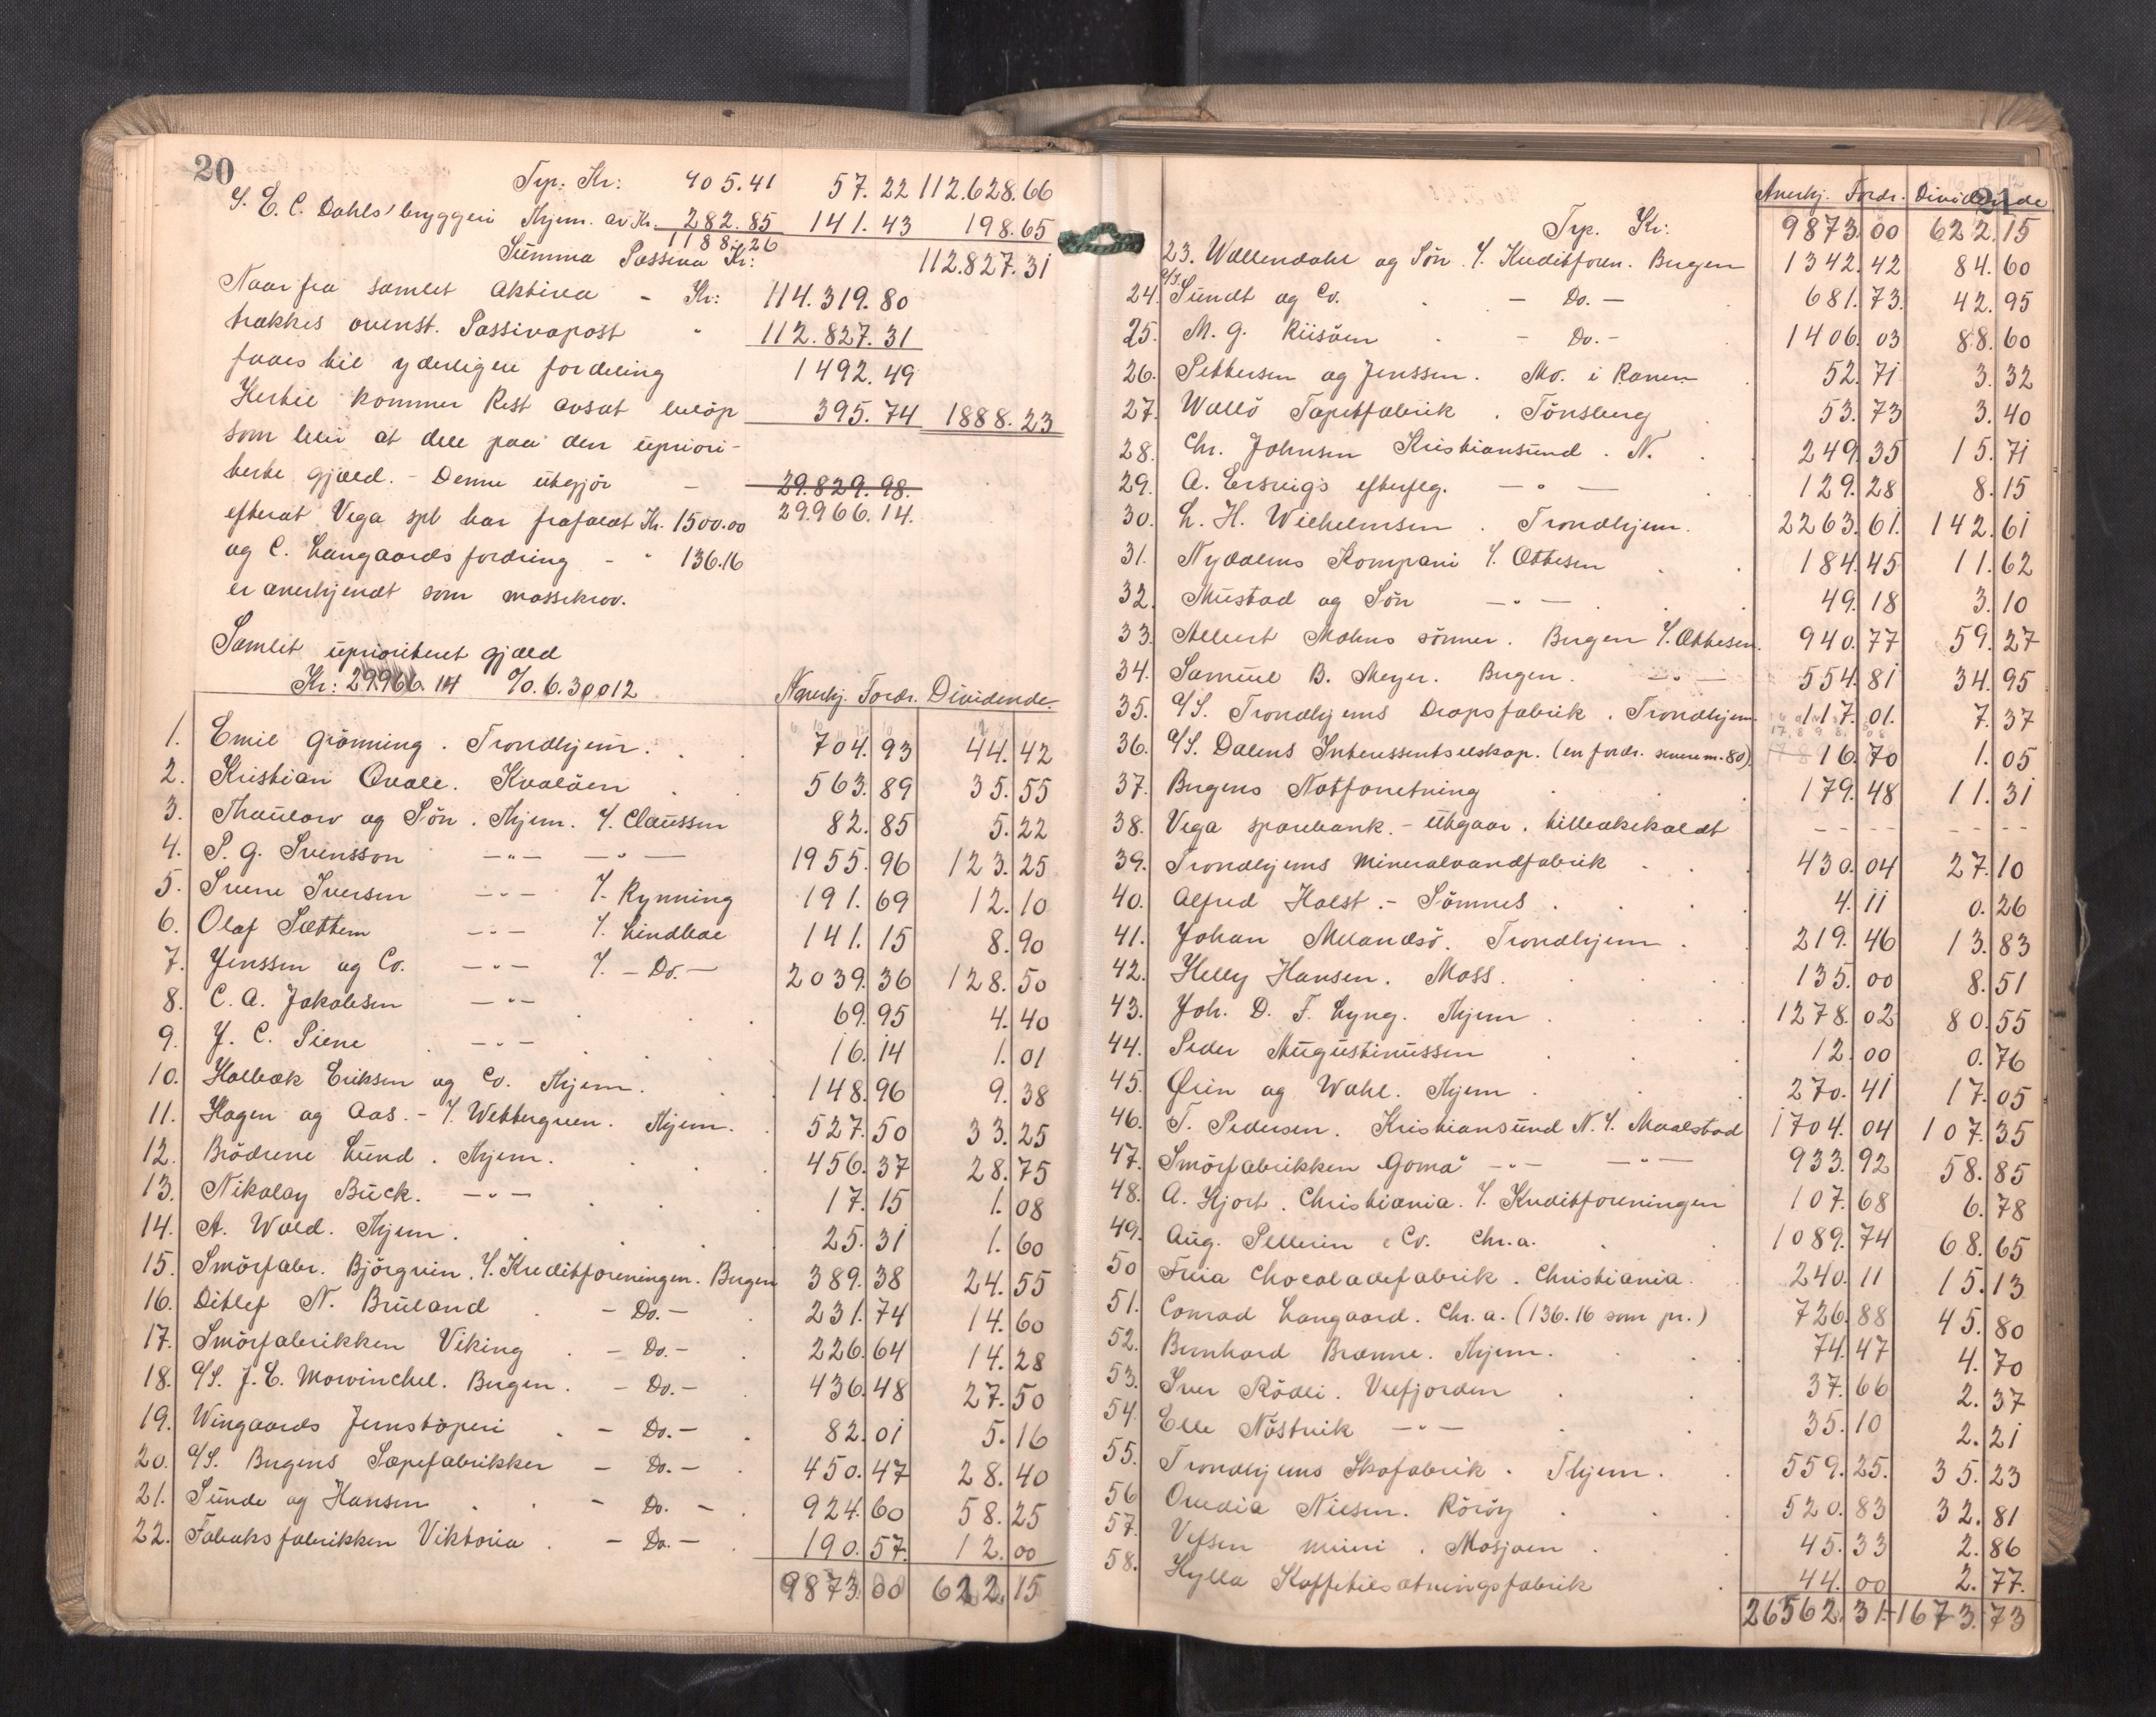 20
Trp: Kr: 405.41 57.22 112.628.66
/. E. C. Dahls' bryggeri Thjem. av Kr. 282.85 141.43 198.65
1188.26
Summa Passiva Kr: 112.827.31
Naar fra samlet aktiva - Kr: 114.319.80
trækkes ovenst. Passivapost " 112.827.31
faaes til yderligere fordeling 1492.49
Hertil kommer Rest avsat beløp 395.74 1888.23
som blir at dele paa den upriori-
terte gjæld. - Denne utgjør - 29.829.98.
efterat Vega spb har frafaldt Kr. 1500.00 29.966.14.
og C. Langaards fordring - " 136.16
er anerkjendt som massekrav.
Samlet uprioritert gjæld
Kr: 29.966.14 % 6.30012 Anerkj. Fordr. Dividende.
1. Emil Grönning. Trondhjem. 704.93 44.42
2. Kristian Qvale. Kvalöen 563.89 35.55
3. Thaulow og Sön. Thjem. /. Claussen 82.85 5.22
4. P. G. Svensson -"- -"- 1955.96 123.25
5. Sverre Iversen -"- /. Rynning 191.69 12.10
6. Olaf Sættem -"- /. Lindbæc 141.15 8.90
7. Jenssen og Co. -"- /. - Do. - 2039.36 128.50
8. C. A. Jakobsen -"- 69.95 4.40
9. J. C. Piene -"- 16.14 1.01
10. Holbæk Eriksen og Co. Thjem. 148.96 9.38
11. Hagen og Aas. - /. Wettergreen. Thjem. 527.50 33.25
12. Brödrene Lund. Thjem. 456.37 28.75
13. Nikolay Buck. -"- 17.15 1.08
14. A. Wold. Thjem. 25.31 1.60
15. Smörfabr. Björgvin. /. Kreditforeningen. Bergen 389.38 24.55
16. Ditlef N. Bruland - Do. - 231.74 14.60
17. Smörfabrikken Viking - Do. - 226.64 14.28
18. A/S. J. E. Mowinckel. Bergen. - Do. - 436.48 27.50
19. Wingaards Jernstöperi - Do. - 82.01 5.16
20. A/S. Bergens Sæpefabrikker - Do. - 450.47 28.40
21. Sunde og Hansen - Do. - 924.60 58.25
22. Tobaksfabrikken Viktoria - Do. - 190.57. 12.00
9873.00 622.15
21
Anerkj. Fordr. Dividende
Trp. Kr: 9873.00 622.15
23. Wallendahl og Sön /. Kreditforen. Bergen 1342.42 84.60
24. A/S. Sundt og Co. - Do. - 681.73. 42.95
25. M. G. Riisöen - Do. - 1406.03 88.60
26. Pettersen og Jenssen. Mo. i Ranen 52.71 3.32
27. Wallö Tapetfabrik. Tönsberg 53.73 3.40
28. Chr. Johnsen Kristiansund. N. 249.35 15.71
29. A. Ersvigs efterflg. -"- 129.28 8.15
30. L. H. Wilhelmsen. Trondhjem. 2263.61. 142.61
31. Nydalens Kompani /. Ottesen 184.45 11.62
32. Mustad og Sön -"- 49.18 3.10
33. Albert Mohns sönner. Bergen /. Ottesen. 940.77 59.27
34. Samuel B. Meyer. Bergen. -"- 554.81 34.95
35. A/S. Trondhjems Dropsfabrik. Trondhjem. 117.01. 7.37
36. A/S. Dalens Interessentselskap. (en fordr. senere m. 80) 16.70 1.05
37. Bergens Notforretning 179.48 11.31
38. Vega sparebank. - Utgaar. tilbakekaldt - - - - - - - -
39. Trondhjems Mineralvandfabrik 430.04 27.10
40. Alfred Holst. - Sömnes. 4.11 0.26
41. Johan Melandsö. Trondhjem. 219.46 13.83
42. Helly Hansen. Moss. 135.00 8.51
43. Joh. D. F. Lyng. Thjem 1278.02 80.55
44. Peder Augustinussen 12.00 0.76
45. Örin og Wahl. Thjem 270.41 17.05
46. T. Pedersen. Kristiansund N. /. Maalstad 1704.04 107.35
47. Smörfabrikken "Goma" -"- -"- 933.92 58.85
48. A. Hjort. Christiania. /. Kreditforeningen 107.68 6.78
49. Aug. Pellerin & Co. Chr.a. 1089.74 68.65
50 Freia Chocoladefabrik. Christiania. 240.11 15.13
51. Conrad Langaard. Chr.a. (136.16 som pr.) 726.88 45.80
52. Bernhard Brænne. Thjem. 74.47 4.70
53. Iver Rödli. Velfjorden 37.66 2.37
54. Elle Nöstvik -"- 35.10 2.21
55. Trondhjems Skofabrik. Thjem. 559.25. 35.23
56 Ovedia Nilsen. Röröy 520.83 32.81
57. Vefsen mieri. Mosjøen 45.33 2.86
58. Hylla Kaffetilsætningsfabrik 44.00 2.77.
26562.31 1673.73